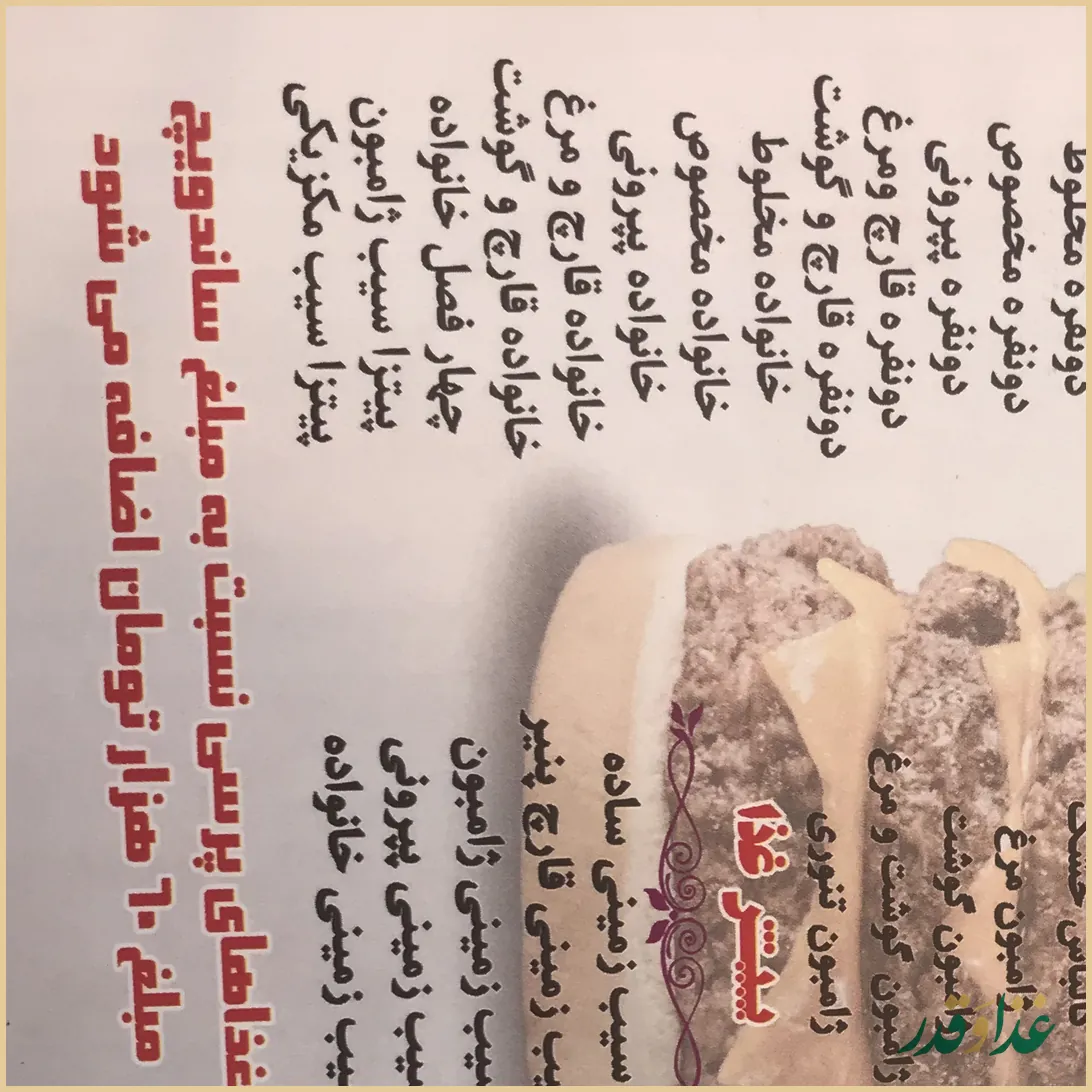 کالباس خشک
ژامبون مرغ
ژامبون گوشت
ژامبون گوشت و مرغ
ژامبون تنوری
پیش غذا
سیب زمینی ساده
سیب زمینی قارچ پنیر
سیب زمینی ژامبون
سیب زمینی پپرونی
سیب زمینی خانواده
دونفره مخلوط
دونفره مخصوص
دونفره پپرونی
دونفره قارچ ومرغ
دونفره قارچ و گوشت
خانواده مخلوط
خانواده مخصوص
خانواده پپرونی
خانواده قارچ و مرغ
خانواده قارچ و گوشت
چهار فصل خانواده
پیتزا سیب ژامبون
پیتزا سیب مکزیکی
غذاهای پرسی نسبت به مبلغ ساندویچ
مبلغ ٦٠ هزار تومان اضافه می شود
غذا و قدر